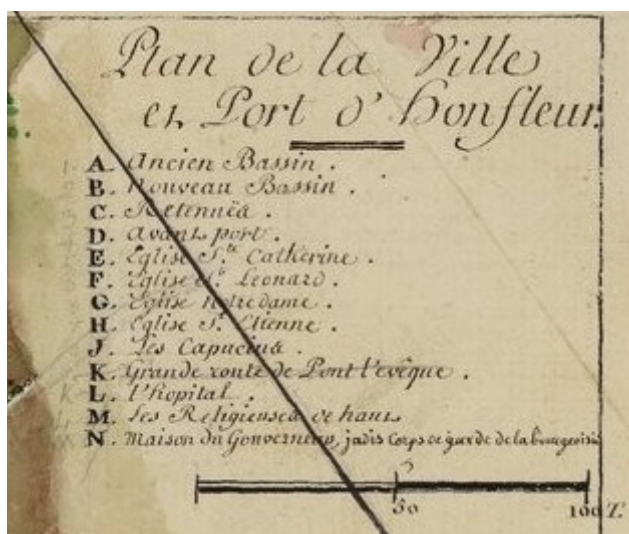 Plan de la Ville
et Port d'Honfleur.
A. Ancien Bassin.
B. Nouveau Bassin.
C. Retenuës.
D. Avant port.
E. Eglise S.te Catherine.
F. Eglise S.t Leonard.
G. Eglise Notre dame.
H. Eglise S.t Etienne.
J. Les Capucins.
K. Grande route de Pont l'evêque.
L. l'hopital.
M. Les Religieuses de haut
N. Maison du Gouverneur, jadis Corps de garde de la bourgeoisie
50 100 T.